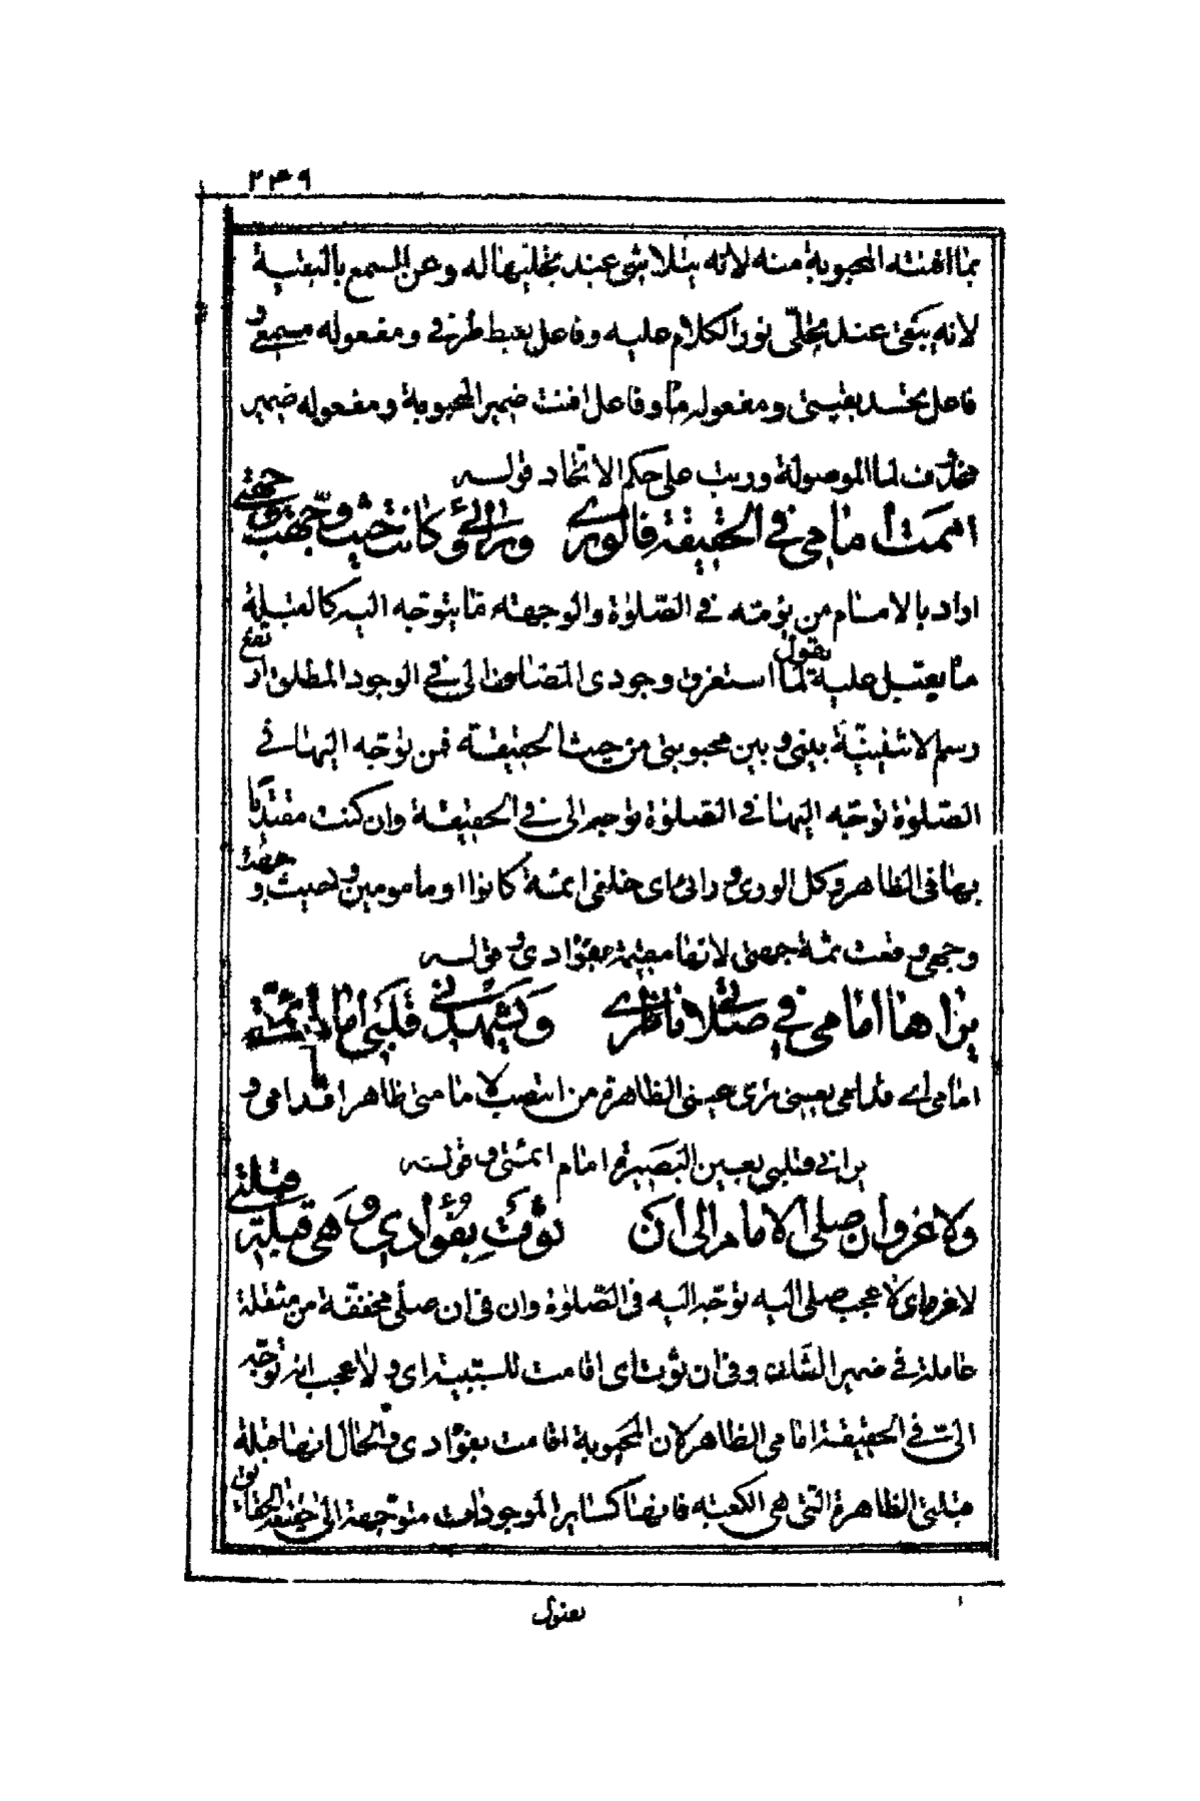 ٢٣٩
بما افنته المحبوبة منه لانه يتلاشى عند تجليها له وعن المسمع بالبقية
لانه يبقى عند تجلّي نور الكلام عليه وفاعل يغبط طرفي ومفعوله مسمعي و
فاعل تحسد بقيتي ومفعوله ما وفاعل افنت ضمير المحبوبة ومفعوله ضمير
محذوف لما الموصولة ورتب على حكم الاتحاد قوله
اممت امامي في الحقيقة فالورى ورائي وكانت حيث وجهت وجهتي
اراد بالامام من يؤمّه في الصّلوٰة والوجهة ما يتوجّه اليه كالقبلة
ما يقبل عليه يقول لما استغرق وجودى المضاف الى في الوجود المطلق ارتفع
رسم الاثنينيّة بيني وبين محبوبتي من حيث الحقيقة فمن توجّه اليها في
الصّلوٰة توجّه اليها في الصّلوٰة توجه الى في الحقيقة وان كنت مقتديا
بها في الظاهر وكل الورى ورائى اى خلفى ائمة كانوا او مامومين وحيث وجهت
وجهي وقعت ثمة جهتي لانها مقيمة بفؤادى وقوله
يراها امامي في صلاتي ناظري ويشهدني قلبي امام ائمّتي
امامى اے قدامى يعنى ترى عينى الظاهرة من انتصب لامامتى ظاهرا قدامى و
يرانى قلبى بعين البصيرة امام ائمتى وقوله
ولا غرو ان صلى الامام الى ان ثوت بفؤادي وهي قبلة قبلتي
لا غرو اى لا عجب صلى اليه توجّه اليه في الصّلوٰة وان في ان صلّى مخففة من مثقلة
عاملة في ضمير الشان وفي ان ثوت اى اقامت للسببية اى ولا عجب انه توجّه
الىّ في الحقيقة امامى الظاهر لان المحبوبة اقامت بفؤادى والحال انها قبلة
قبلتى الظاهرة التى هى الكعبة فانها كساير الموجودات متوجهة الى حقيقة الحقايق
يعنول